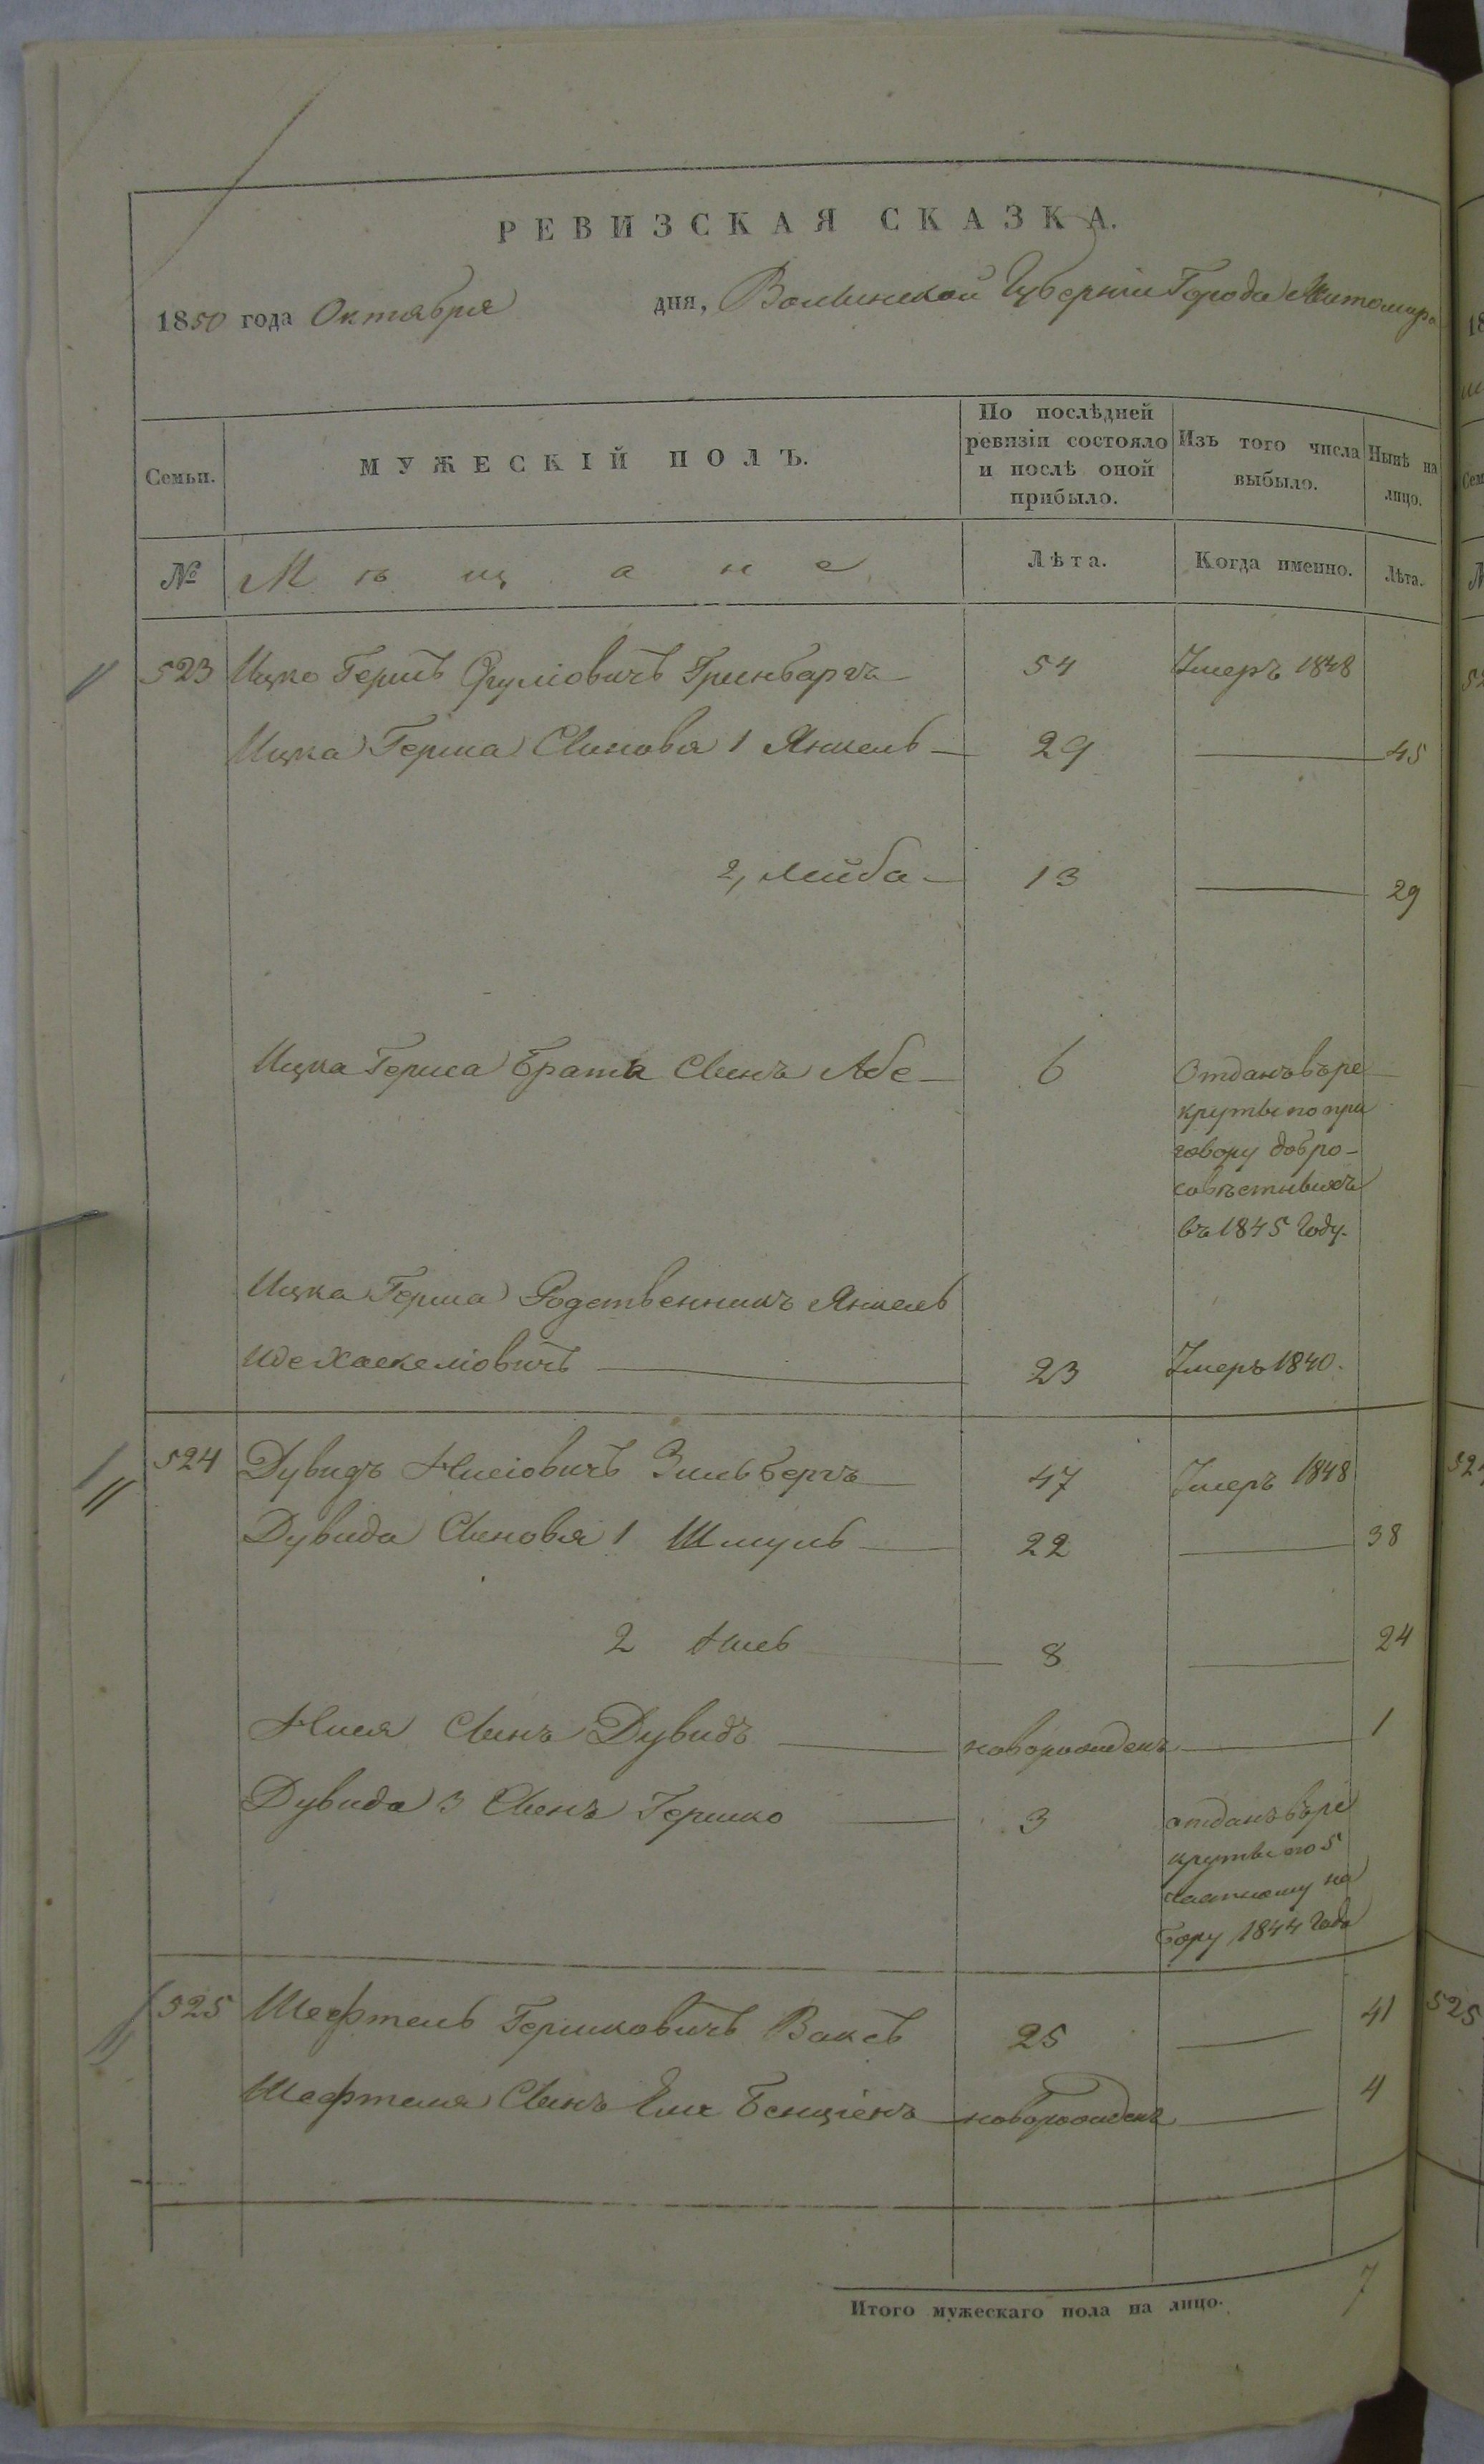 РЕВИЗСКАЯ СКАЗКА.
1850 года Октября дня, Волынской Губерніи Города Житомира
Семьи. МУЖЕСКІЙ ПОЛЪ. По послѣдней ревизіи состояло и послѣ оной прибыло. Изъ того числа выбыло. Нынѣ на лицо.
№ Мѣщане Лѣта. Когда именно. Лѣта.
523 Ицко Гершъ Сруліовичъ Гринбаргъ 54 Умеръ 1848
Ицка Герша Сыновья 1 Янкель 29 45
2, Лейба 13 29
Ицка Герша Брата Сынъ Абе 6 Отданъ въ ре
круты по при
говору добро-
совѣстныхъ
въ 1845 Году.
Ицка Герша Родственникъ Янкель
Иде Хаскеліовичъ 23 Умеръ 1840.
524 Дувидъ Нисіовичъ Зильбергъ 47 Умеръ 1848
Дувида Сыновья 1 Шмуль 22 38
2 Нись 8 24
Нися Сынъ Дувидъ новорожденъ 1
Дувида 3 Сынъ Гершко 3 отданъ въ ре
круты по 5
частному на
бору 1844 Года
525 Шефтель Гершковичъ Ваксъ 25 41
Шефтеля Сынъ Бенціенъ новорожденъ 4
Итого мужескаго пола на лицо. 7